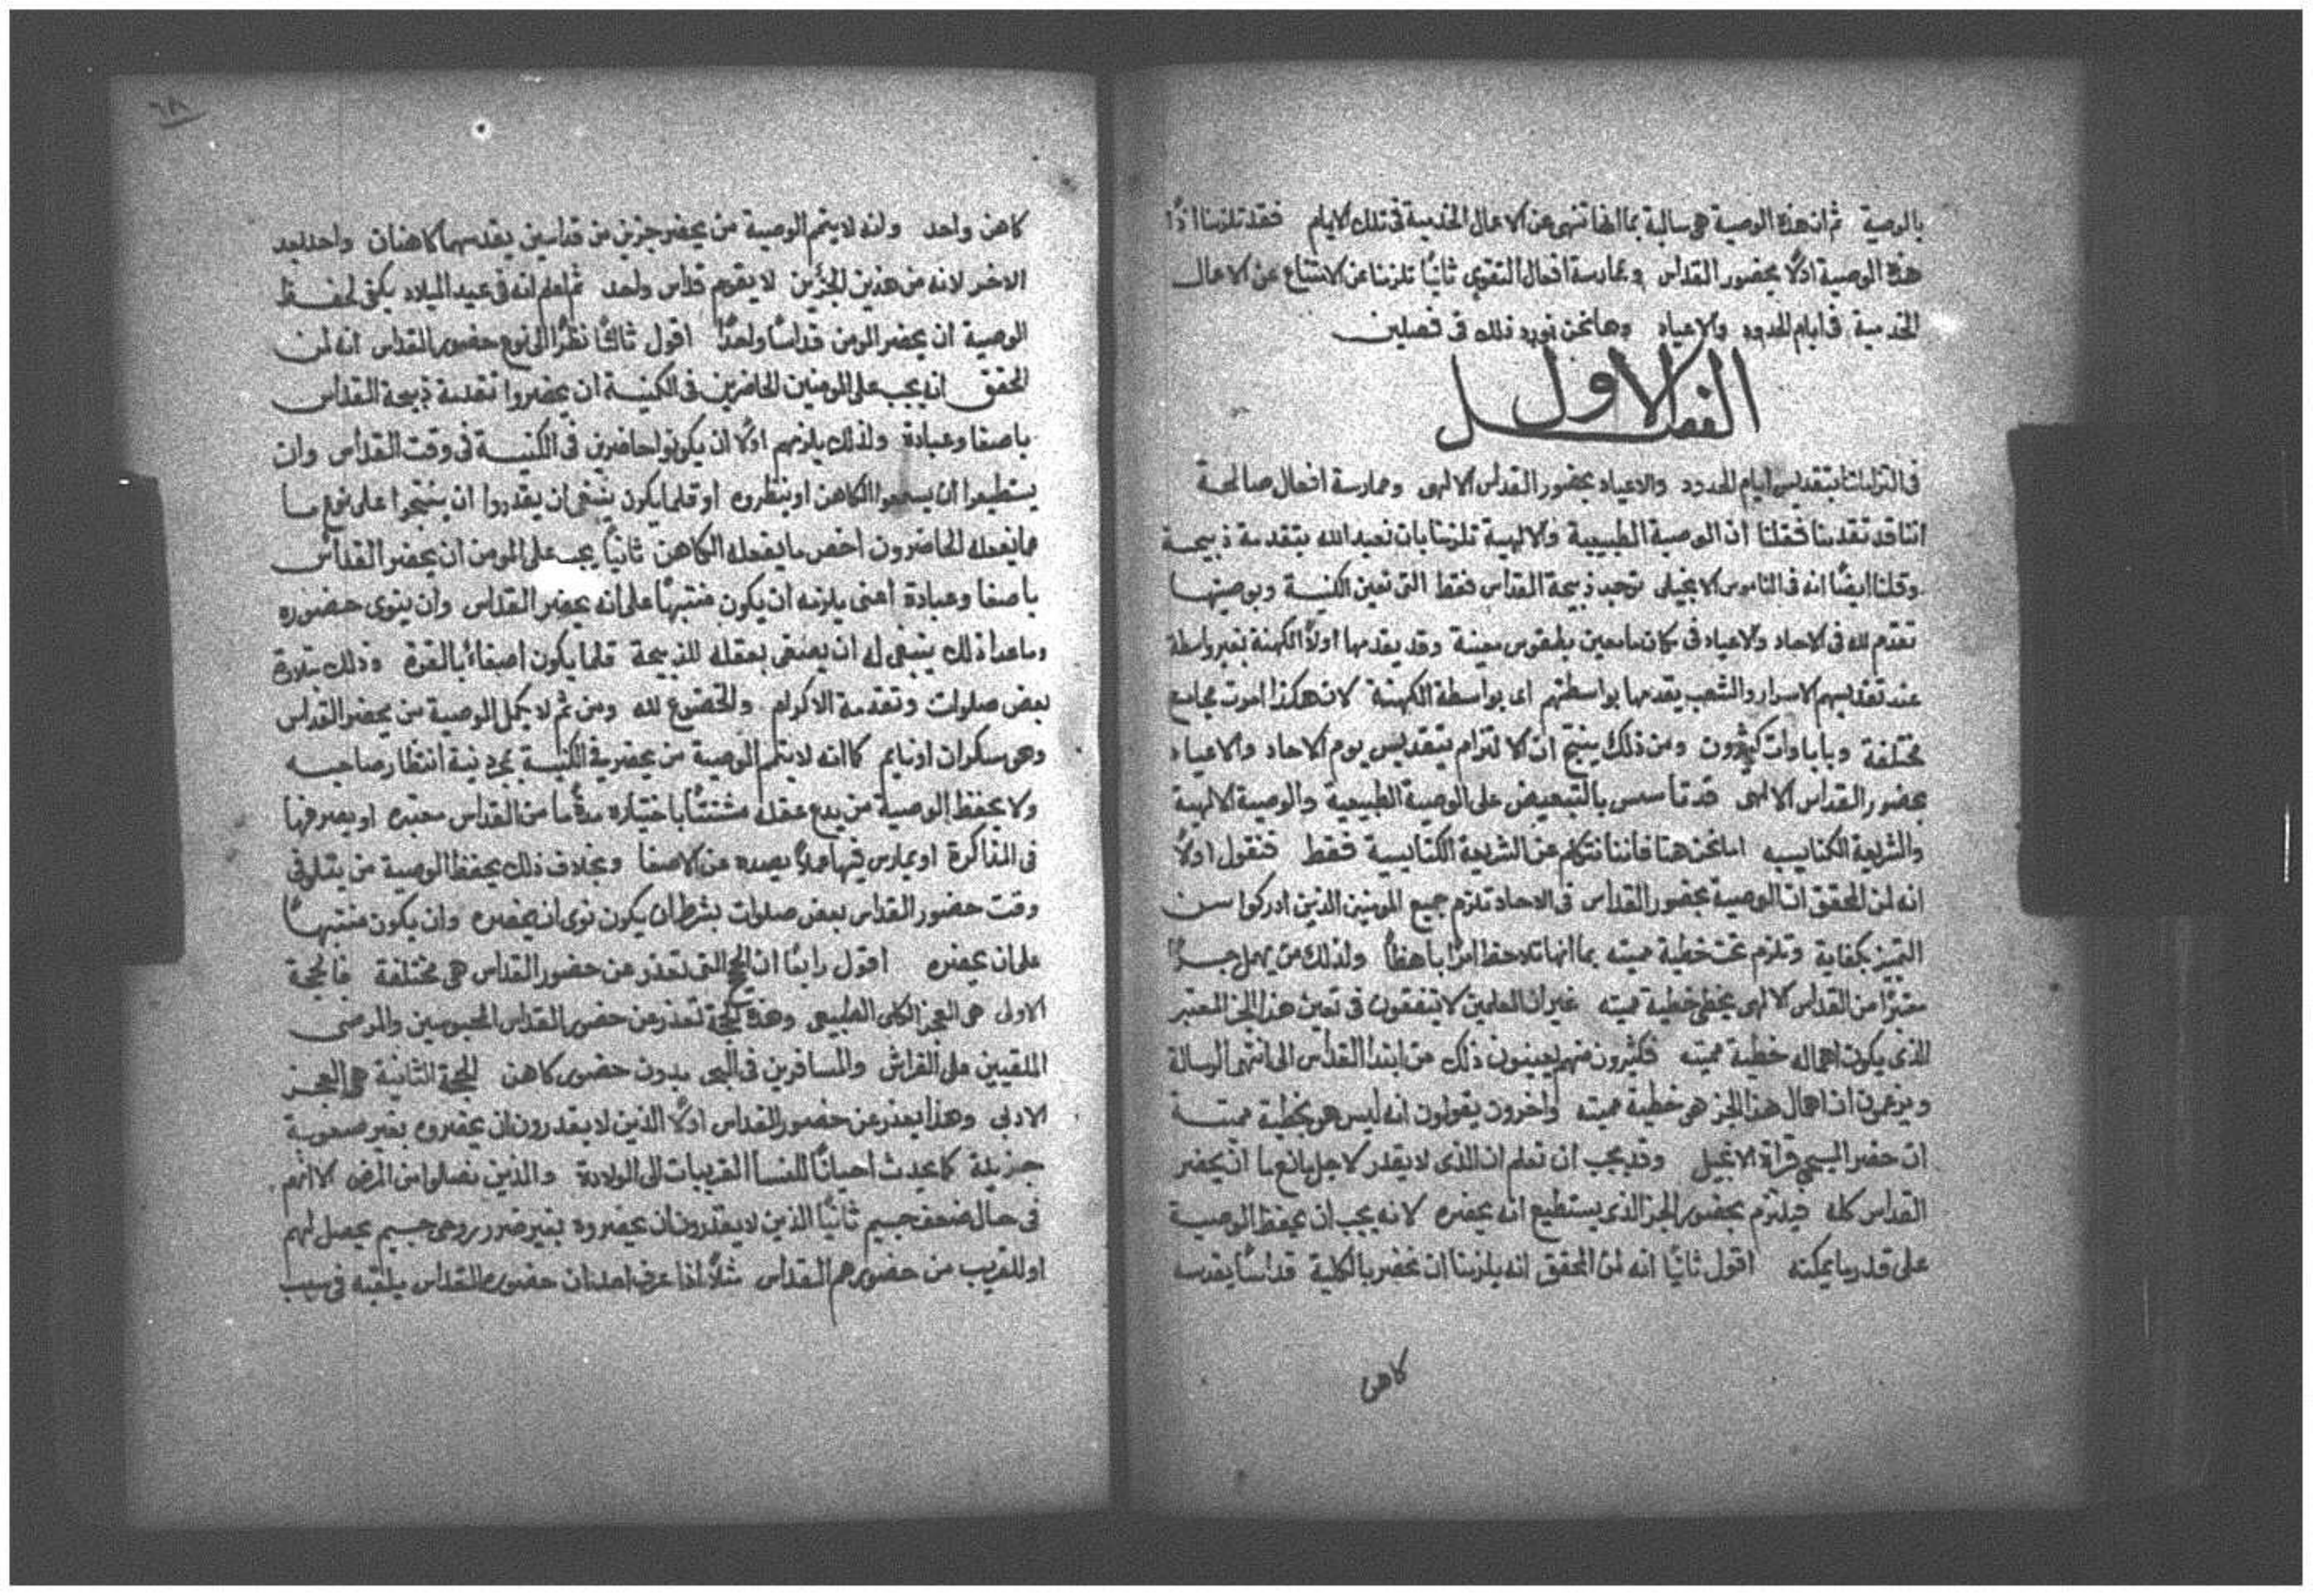 بالوصية ثم ان هذه الوصية هى سالبة بما انها تنهى عن الاعمال الخدمية فى تلك الايام فقد تلزمنا اذًا
هذه الوصية اولًا بحضور القداس وممارسة افعال التقوى ثانيًا تلزمنا عن الامتناع عن الاعمال
الخدمية فى ايام الحدود والاعياد وها نحن نورد ذلك فى فصلين
الفصل الاول
فى التزامنا بتقديس ايام الحدود والاعياد بحضور القداس الالهى وممارسة افعال صالحة
اننا قد تقدمنا فقلنا ان الوصية الطبيعية والالهية تلزمنا بان نعبد الله بتقدمة ذبيحة
وقلنا ايضًا انه فى الناموس الانجيلى توجد ذبيحة القداس فقط التى تعين الكنيسة وتوصيها
تقدم لله فى الاحاد والاعياد فى مكان ما معين بطقوس معينة وقد يقدمها اولًا الكهنة بغير واسطة
عند تقديسهم الاسرار والشعب يقدمها بواسطتهم اى بواسطة الكهنة لان هكذا امرت مجامع
مختلفة وباباوات كثيرون ومن ذلك ينتج ان الالتزام بتقديس يوم الاحاد والاعياد
بحضور القداس الالهى قد تاسس بالتبعيض على الوصية الطبيعية والوصية الالهية
والشريعة الكنايسيه اما نحن هنا فاننا نتكلم عن الشريعة الكنايسية فقط فنقول اولًا
انه لمن المحقق ان الوصية بحضور القداس فى الاحاد تلزم جميع المومنين الذين ادركوا سن
التميز بكفاية وتلزم تحت خطية مميته بما انها تلاحظ امرًا باهظًا ولذلك من يهمل جزًا
معتبرًا من القداس الالهى يخطى خطية مميته غير ان المعلمين لا يتفقون فى تعين هذا الجز المعتبر
الذى يكون اهماله خطية مميته فكثيرون منهم يعينون ذلك من ابتدا القداس الى انتهى الرسالة
ويزعمون ان اهمال هذا الجز هو خطية مميته واخرون يقولون انه ليس هو بخطية مميتة
ان حضر المسيحى قراة الانجيل وقد يجب ان تعلم ان الذى لا يقدر لاجل مانع ما ان يحضر
القداس كله فيلتزم بحضور الجز الذى يستطيع انه يحضره لانه يجب ان يحفظ الوصية
على قدر ما يمكنه اقول ثانيًا انه لمن المحقق انه يلزمنا ان نحضر بالكلية قداسًا يقدسه
كاهن
٦٨
كاهن واحد وانه لا يتم الوصية من يحضر جزين من قداسين يقدسهما كاهنان واحد بعد
الاخر لانه من هذين الجزين لا يقوم قداس واحد ثم اعلم انه فى عيد الميلاد يكفى لحفظ
الوصية ان يحضر المومن قداسًا واحدًا اقول ثالثًا نظرًا الى نوع حضور القداس انه لمن
المحقق انه يجب على المومنين الحاضرين فى الكنيسة ان يحضروا تقدمة ذبيحة القداس
باصغا وعبادة ولذلك يلزمهم اولًا ان يكونوا حاضرين فى الكنيسة فى وقت القداس وان
يستطيعوا ان يسمعوا الكاهن او ينظروه او قلما يكون ينبغى ان يقدروا ان ينتبحوا على نوع ما
مما يفعله الحاضرون اخص ما يفعله الكاهن ثانيًا يجب على المومن ان يحضر القداس
باصغا وعبادة اعنى يلزمه ان يكون منتبهًا على انه يحضر القداس وان ينوى حضوره
وما عدا ذلك ينبغى له ان يصغى بعقله للذبيحة قلما يكون اصغاءً بالقوة وذلك بتلاوة
بعض صلوات وتقدمة الاكرام والخضوع لله ومن ثم لا يكمل الوصية من يحضر القداس
وهو سكران او نايم كما انه لا يتمم الوصية من يحضر فى الكنيسة بمجرد نية انتظار صاحبه
ولا يحفظ الوصية من يدع عقله مشتتًا باختياره مدةً ما من القداس معتبره او يصرفها
فى المذاكرة او يمارس فيها عملًا يصده عن الاصغا وبخلاف ذلك يحفظ الوصية من يتلو فى
وقت حضور القداس بعض صلوات بشرط ان يكون نوى ان يحضره وان يكون منتبهًا
على ان يحضره اقول رابعًا ان الحجج التى تعذر عن حضور القداس هى مختلفة فالحجة
الاولى هى العجز الكلى الطبيعى وهذه الحجة تعذر عن حضور القداس المحبوسين والمرضى
الملقيين على الفراش والمسافرين فى البحر بدون حضور كاهن الحجة الثانية هى العجز
الادبى وهذا يعذر عن حضور القداس اولًا الذين لا يقدرون ان يحضروه بغير صعوبة
جزيلة كما يحدث احيانًا للنسا القريبات الى الولادة والذين نصلوا من المرض الا انهم
فى حال ضعف جسيم ثانيًا الذين لا يقدرون ان يحضروه بغير ضرر روحى جسيم يحصل لهم
او للقريب من حضورهم القداس مثلًا اذا عرف احد ان حضوره القداس يلقيه فى سبب